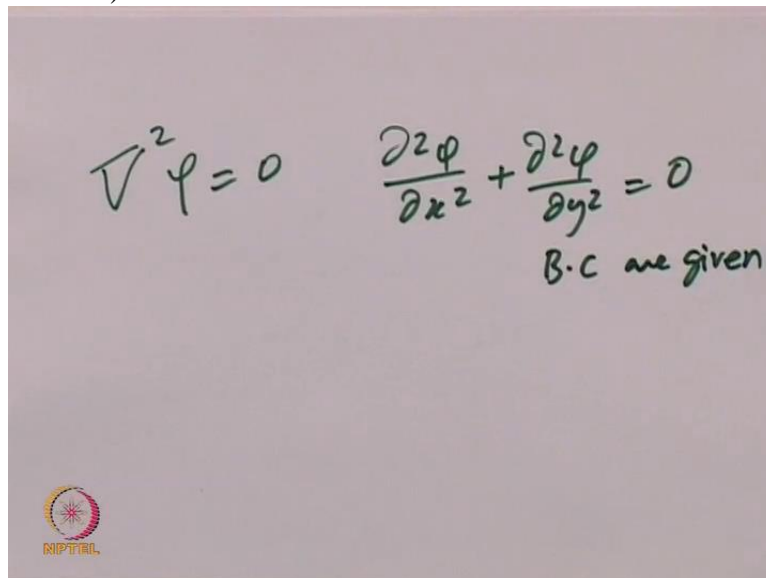 ∇²φ = 0    ∂²φ/∂x² + ∂²φ/∂y² = 0
B.C are given
NPTEL